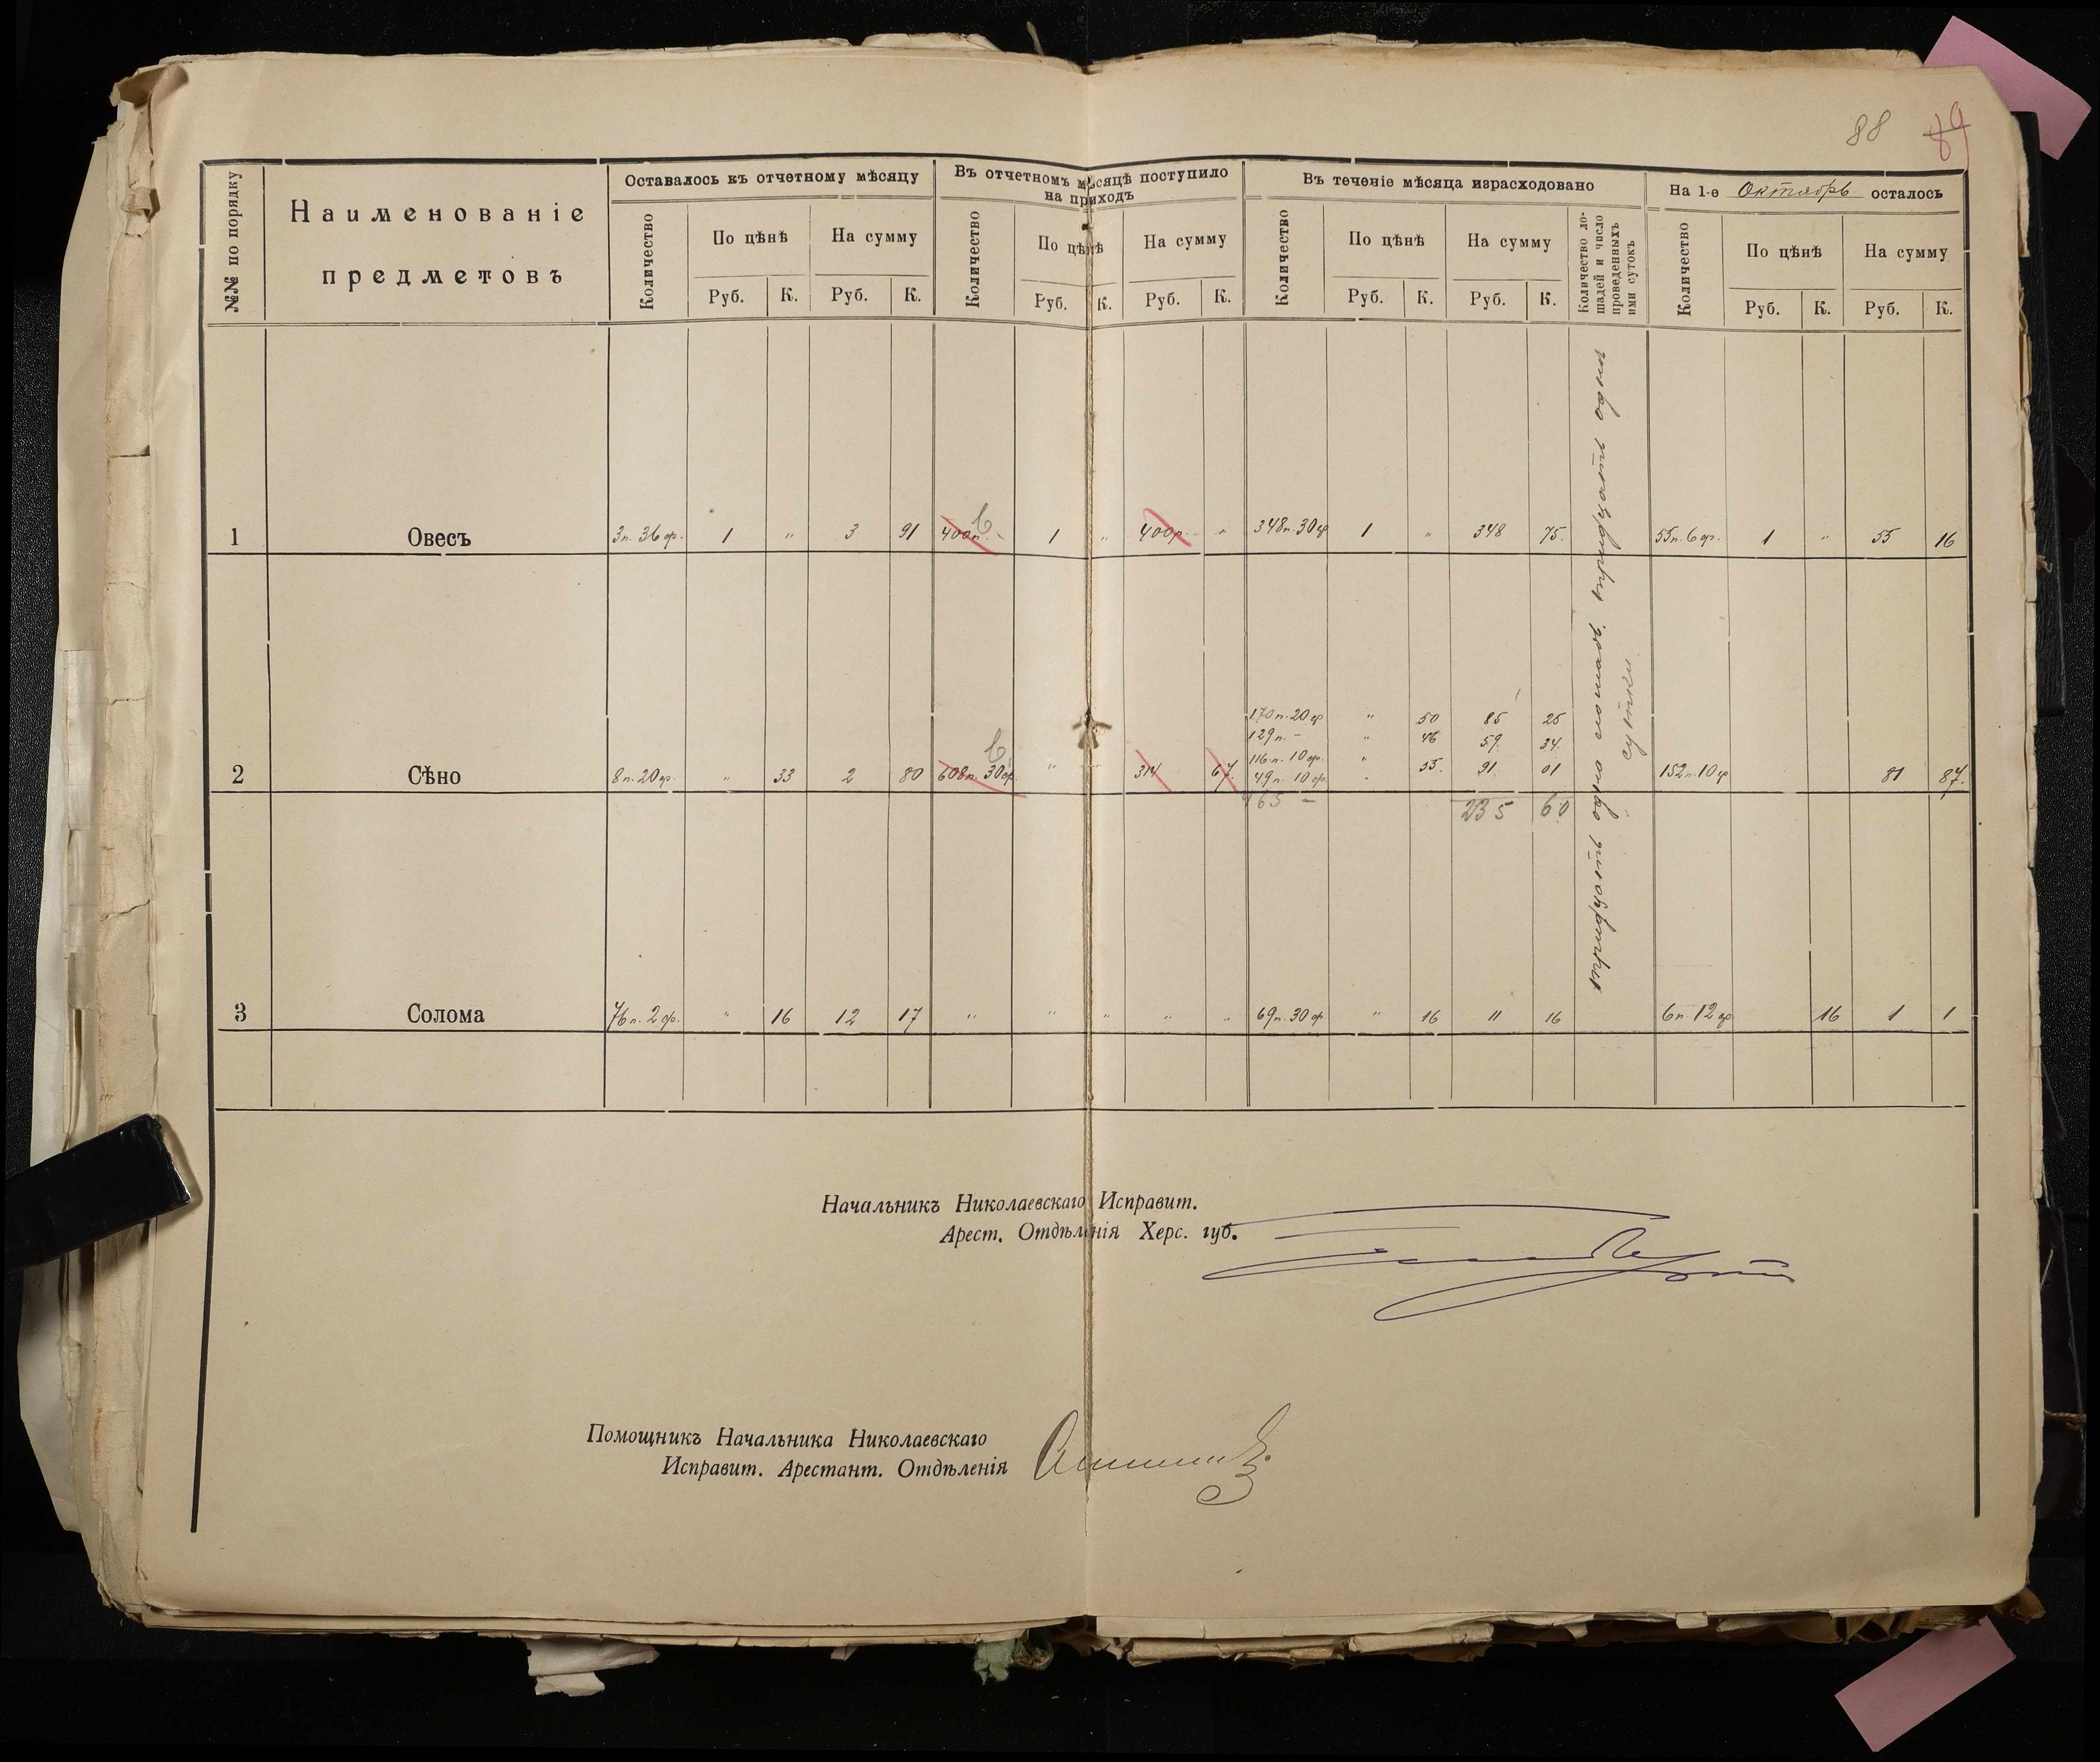 88 89
№№ по порядку
Наименованіе предметовъ
Оставалось къ отчетному мѣсяцу
Въ отчетномъ мѣсяцѣ поступило на приходъ
Въ теченіе мѣсяца израсходовано
На 1-е Октябрь осталось
Количество По цѣнѣ На сумму Количество По цѣнѣ На сумму Количество По цѣнѣ На сумму
Количество ло-
шадей и число
проведенныхъ
ими сутокъ
Количество По цѣнѣ На сумму
Руб. К. Руб. К. Руб. К. Руб. К. Руб. К. Руб. К. Руб. К. Руб. К.
1 Овесъ 3п. 36ф. 1 " 3 91 400п. - 1 " 400р. " 348п. 30ф 1 " 348 75. 55п. 6ф. 1 " 55 16
170п. 20ф " 50 85 25
129п. - " 46 59. 34.
116п. 10ф. " 55. 91. 01
2 Сѣно 8п. 20ф. " 33 2 80 608п. 30ф. " " 314 67. 49п. 10ф. 152п. 10ф 81 87.
465 - 235 60
3 Солома 76п. 2ф. " 16 12 17 " " " " " 69п. 30ф. " 16 11 16 6п. 12ф 16 1 1
тридцать одна лошадь, тридцать одни
сутки
Начальникъ Николаевскаго Исправит.
Арест. Отдѣленія Херс. губ.
Помощникъ Начальника Николаевскаго
Исправит. Арестант. Отдѣленія